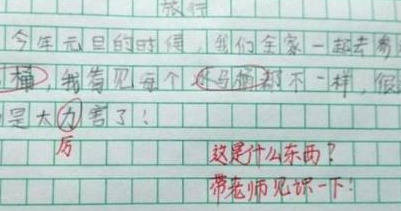 旅行
今年元旦的时候,我们全家一起去参
桶,我看见每个小马桶都不一样,很
是太力害了!
厉
这是什么东西?
带老师见识一下!